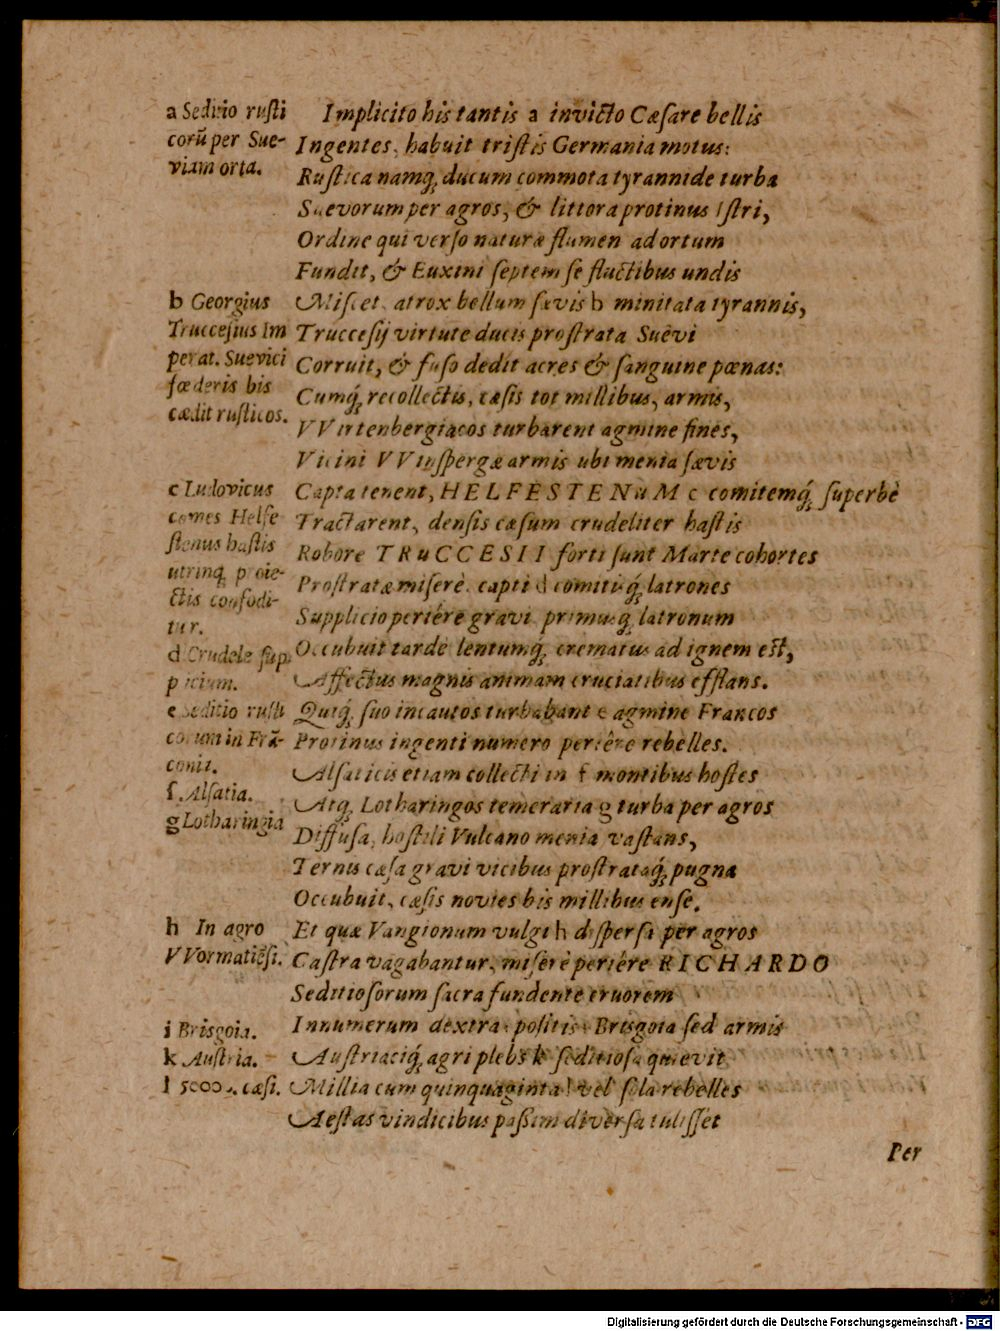 a Seditio rusti
corũ per Sue-
viam orta.
Implicito his tantis a invicto Cæsare bellis
Ingentes, habuit tristis Germania motus:
Rustica namq́; ducum commota tyrannide turba
Suevorum per agros, & littora protinus Istri,
Ordine qui verso naturæ flumen ad ortum
Fundit, & Euxini septem se fluctibus undis
b Georgius
Truccesius Im
perat. Suevici
fœderis bis
cædit rusticos.
Miscet, atrox bellum sævis b minitata tyrannis,
Truccesij virtute ducis prostrata Suêvi
Corruit, & fuso dedit acres & sanguine pœnas:
Cumq́; recollectis, cæsis tot millibus, armis,
VVirtenbergiacos turbarent agmine fines,
Vicini VVinspergæ armis ubi menia sævis
c Ludovicus
comes Helfe
stenus hastis
utrinq; proie-
ctis confodi-
tur.
Capta tenent, HELFESTENuM c comitemq́; superbè
Tractarent, densis cæsum crudeliter hastis
Robore TRuCCESII forti sunt Marte cohortes
Prostratæ miserè, capti d comitisq́; latrones
Supplicio periêre gravi, primusq́; latronum
d Crudele sup
plicium.
Occubuit tardè lentumq́; crematus ad ignem est,
Affectus magnis animam cruciatibus efflans.
e Seditio rusti
corum in Frã-
conia.
Quiq́; suo incautos turbabant e agmine Francos
Protinus ingenti numero periêre rebelles.
f. Alsatia.
g Lotharingia
Alsaticis etiam collecti in f montibus hostes
Atq́; Lotharingos temeraria g turba per agros
Diffusa, hostili Vulcano menia vastans,
Ternis cæsa gravi vicibus prostrataq́; pugna
Occubuit, cæsis novies bis millibus ense.
h In agro
VVormatiẽsi.
Et quæ Vangionum vulgi h dispersa per agros
Castra vagabantur, miserè periêre RICHARDO
Seditiosorum sacra fundente cruorem
i Brisgoia.
k Austria.
l 50000. cæsi.
Innumerum dextra: positis i Brisgoia sed armis
Austriaciq́; agri plebs k seditiosa quievit
Millia cum quinquaginta l vel sola rebelles
Aestas vindicibus passim diversa tulisset
Per
Digitalisierung gefördert durch die Deutsche Forschungsgemeinschaft - DFG